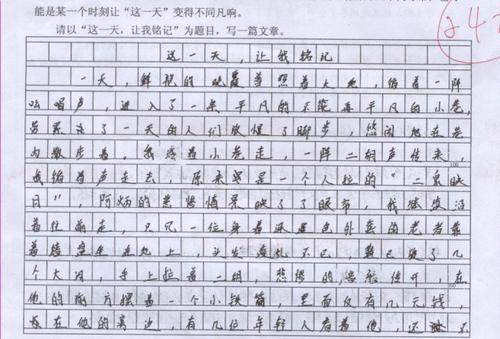 能是某一个时刻让“这一天”变得不同凡响。
请以“这一天，让我铭记”为题目，写一篇文章。
24
这一天，让我铭记
一天，鲜艳的晚霞普照着大地，循着一阵
吆喝声，进入了一条平凡的不能再平凡的小巷，
劳累了一天的人们放慢了脚步，悠闲地在巷
内散步着，我沿着小巷走，一阵二胡声传来，
100
我循着声走去，原来是一个人拉的“二泉映
日”，阿炳的悲惨情景映了了眼帘，我继续沿
着往前走，只见一位身着黑色外套的老者靠
着墙坐在地上，头发凌乱不已，鞋已破了几
个大洞，手上拉着二胡，悲惨的音乐传开，在
他的前方摆着一个小铁筒，里面仅有几元钱，
在他的旁边，有几位年轻人看着他，还